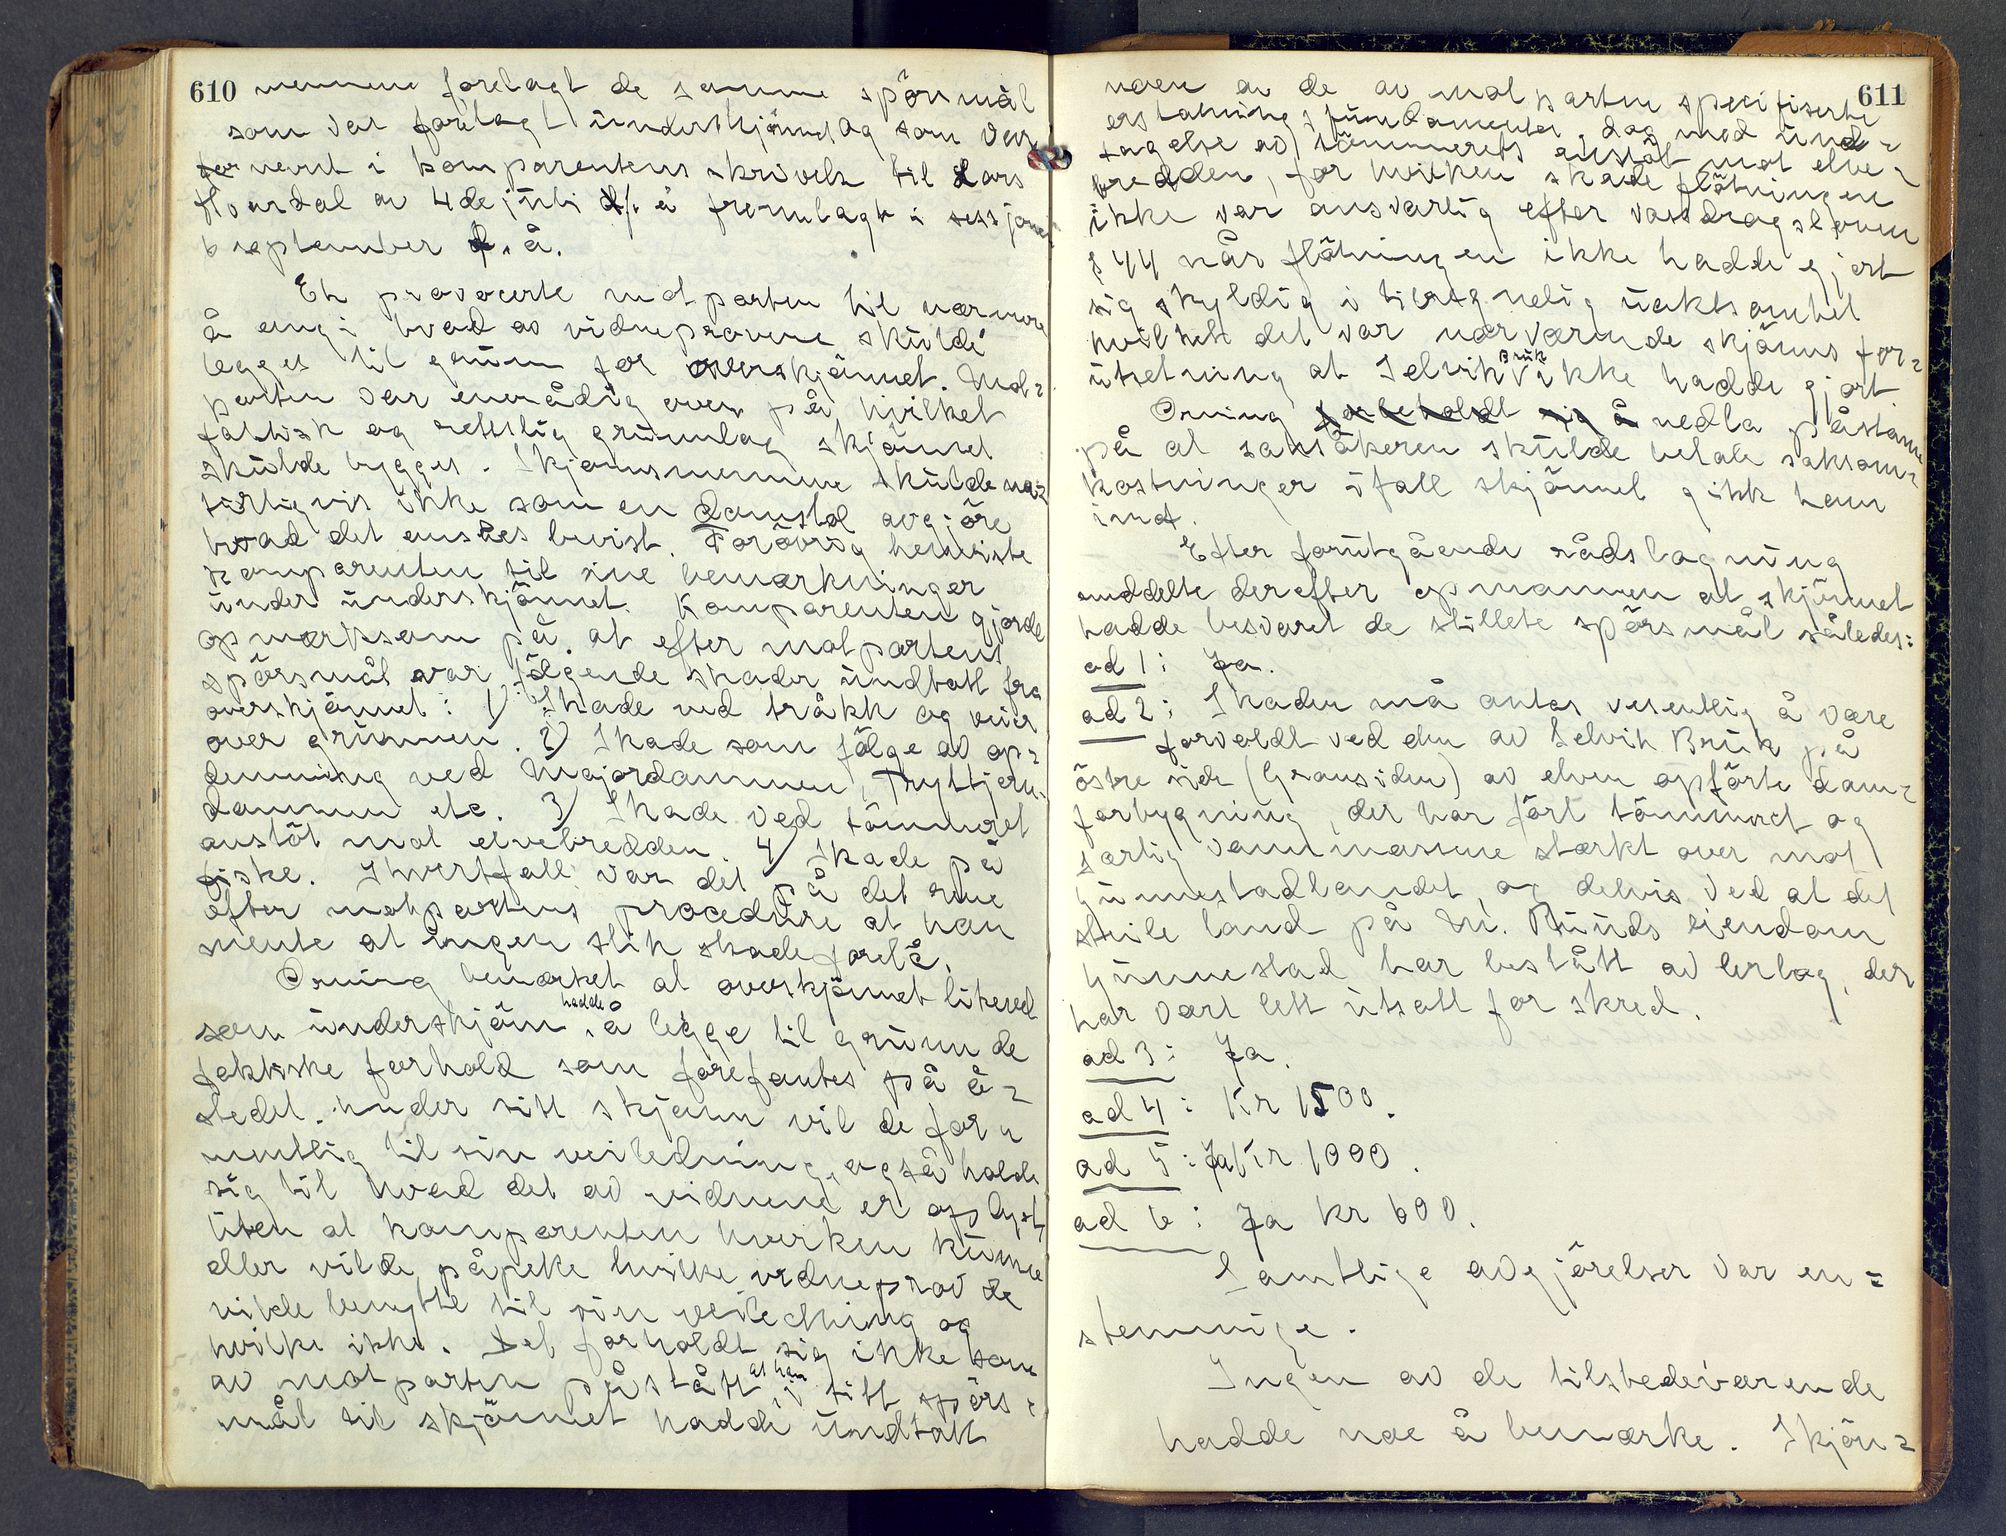 610
mennene forelagt de samme spörsmål
som var forelagt underskjönn og som var
nevnt i komparentens skrivelse til Lars
Hvardal av 4de juli d/. å fremlagt i sessjonen
6 september d. å.
Eh provocerte motparten til nærmere
å angi hvad av vidneprovene skulde
legges til grunn for overskjönnet. Mot-
parten var enerådig over på hvilket
faktisk og rettslig grunnlag skjönnet
skulde bygges. Skjönnsmennene skulde na-
turligvis ikke som en domstol avgjöre
hvad det ansees bevist. Forövrig henviste
komparenten til sine bemerkninger
under underskjönnet. Komparenten gjorde
opmerksom på, at efter motpartens
spörsmål var fölgende skader undtatt fra
overskjönnet: 1) Skade ved tråkk og veier
over grunnen. 2) Skade som fölge av op-
demning ved Majordammen, Tryttjern-
dammen etc. 3) Skade ved tömmeret
anstöt mot elvebredden. 4) Skade på
fiske. Ihvertfall var det på det rene
efter motpartens procedure at han
mente at ingen slik skade forelå.
Orning bemerket at overskjönnet likeved
som underskjönn hadde å legge til grunn de
faktiske forhold som forefantes på å-
stedet. Under sitt skjönn vil de for-
mentlig til sin veiledning, også holde
sig til hvad det av vidnene er oplyst,
uten at komparenten hverken kunne
eller vilde påpeke hvilke vidneprov de
vilde benytte til sin veiledning og
hvilke ikke. Det forholdt sig ikke som
av motparten påstått at han i sitt spörs-
mål til skjönnet hadde undtatt
611
noen av de av motparten specifiserte
erstatningsfundamenter, dog med und-
tagelse av tömmerets anstöt mot elve-
bredden, for hvilken skade flötningen
ikke var ansvarlig efter vassdragsloven
§ 44 når flötningen ikke hadde gjort
sig skyldig i tilregnelig uaktsomhet
hvilket det var nærværende skjönns for-
utsetning at Selvik Bruk ikke hadde gjort.
Orning forbeholdt sig å nedla påstand
på at saksökeren skulde betale saksom-
kostninger ifall skjönnet gikk ham
imot.
Efter forutgående rådslagning
meddelte derefter opmannen at skjönnet
hadde besvaret de stillete spörsmål således:
ad 1: Ja.
ad 2: Skaden må antas vesentlig å være
forvoldt ved den av Selvik Bruk på
östre side (Gransiden) av elven opförte dam-
forbygning, der har fört tömmeret og
særlig vannmassene stærkt over mot
Gunnestadlandet, og delvis ved at det
steile land på M. Ruuds eiendom
Gunnestad har bestått av lerlag, der
har vært lett utsatt for skred.
ad 3: Ja.
ad 4: Kr 1500.
ad 5: Ja Kr 1000.
ad 6: Ja kr 600.
Samtlige avgjörelser var en-
stemmige.
Ingen av de tilstedeværende
hadde noe å bemerke. Skjön-